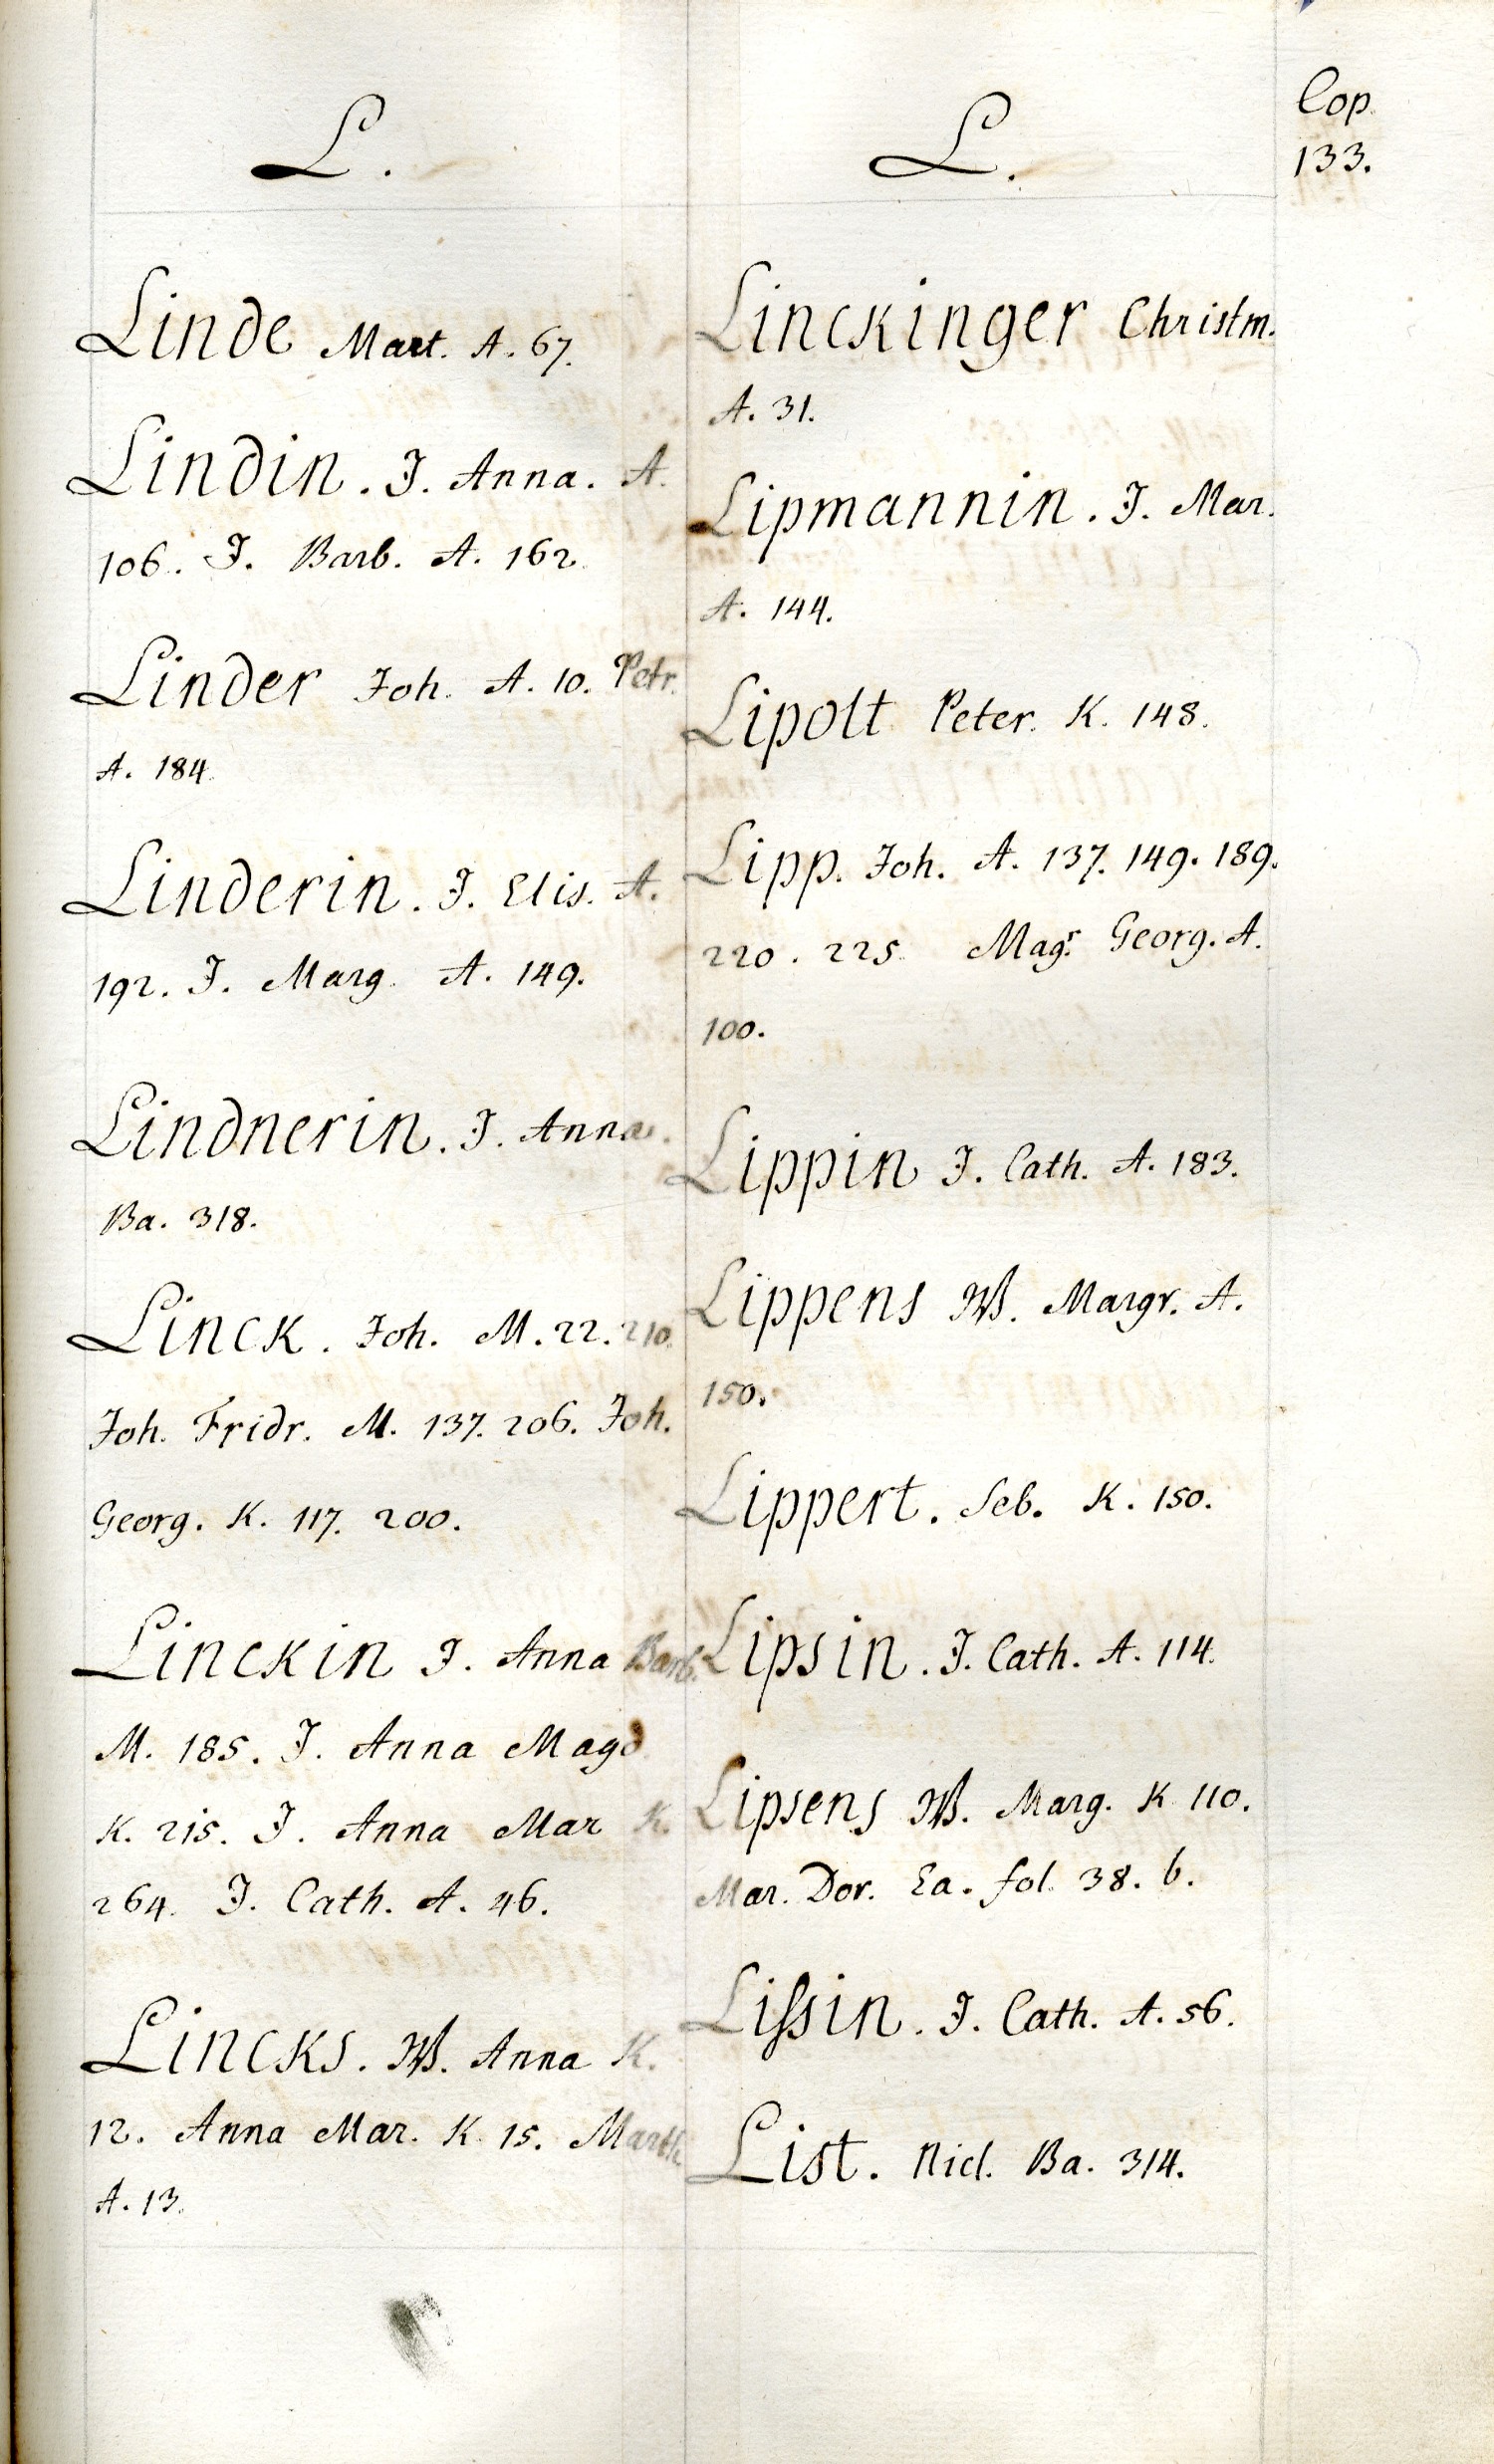 L.
Linde Mart. A. 67.
Lindin. J. Anna. A.
106. J. Barb. A. 162.
Linder Joh. A. 10. Petr.
A. 184.
Linderin. J. Elis. A.
192. J. Marg. A. 149.
Lindnerin. J. Anna.
Ba. 318.
Linck. Joh. M. 22. 210.
Joh. Fridr. M. 137. 206. Joh.
Georg. K. 117. 200.
Linckin J. Anna Barb.
M. 185. J. Anna Magd
K. 215. J. Anna Mar K.
264. J. Cath. A. 46.
Lincks. W. Anna K.
12. Anna Mar. K. 15. Marth.
A. 13.
L.
Linckinger Christm.
A. 31.
Lipmannin. J. Mar.
A. 144.
Lipolt Peter. K. 148.
Lipp. Joh. A. 137. 149. 189.
220. 225. Magr. Georg. A.
100.
Lippin J. Cath. A. 183.
Lippens W. Margr. A.
150.
Lippert. Seb. K. 150.
Lipsin. J. Cath. A. 114.
Lipsens W. Marg. K 110.
Mar. Dor. Ea. fol. 38. b.
Liſsin. J. Cath. A. 56.
List. Nicl. Ba. 314.
Cop.
133.